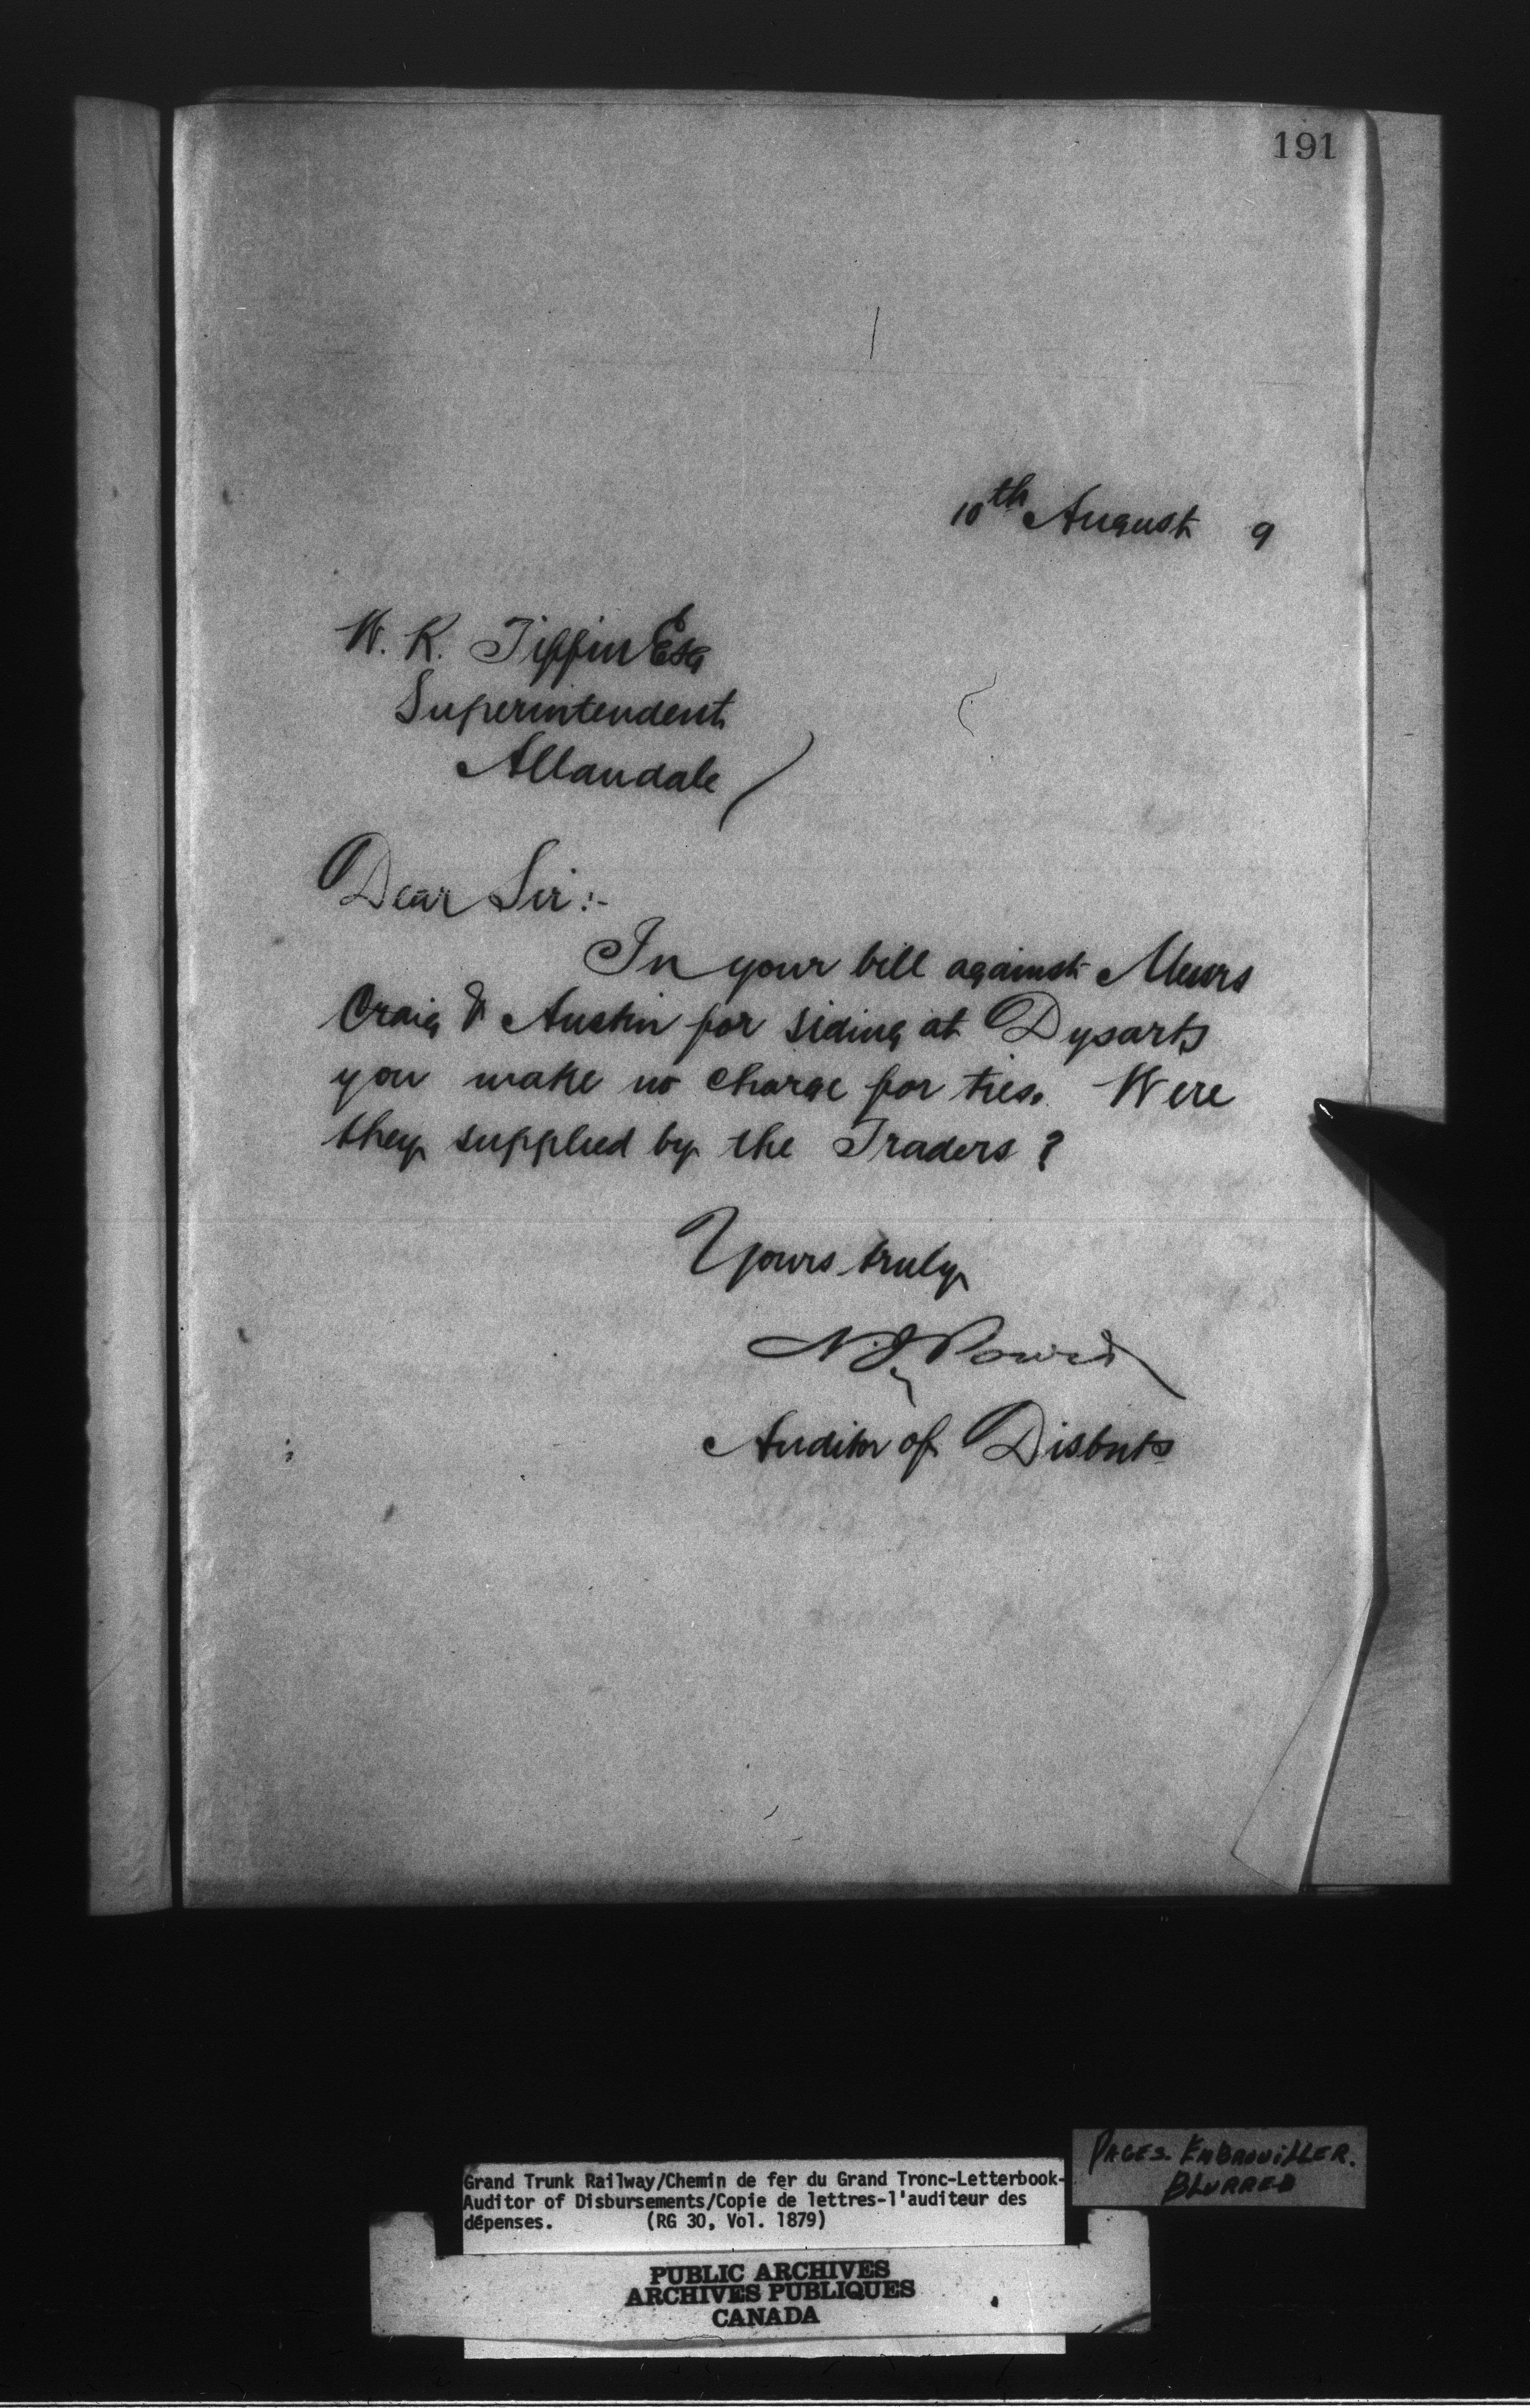 191
10th August 9
W. K. Tiffin Esq
Superintendent
Allandale
Dear Sir:-
In your bill against Messrs
Craig & Austin for siding at Dysarts
you make no charge for ties. Were
they supplied by the Traders?
Yours truly
N. J. Power
Auditor of Disbmts
PAGES. EMBROUILLER.
BLURRED
Grand Trunk Railway/Chemin de fer du Grand Tronc-Letterbook-
Auditor of Disbursements/Copie de lettres-l'auditeur des
dépenses. (RG 30, Vol. 1879)
PUBLIC ARCHIVES
ARCHIVES PUBLIQUES
CANADA